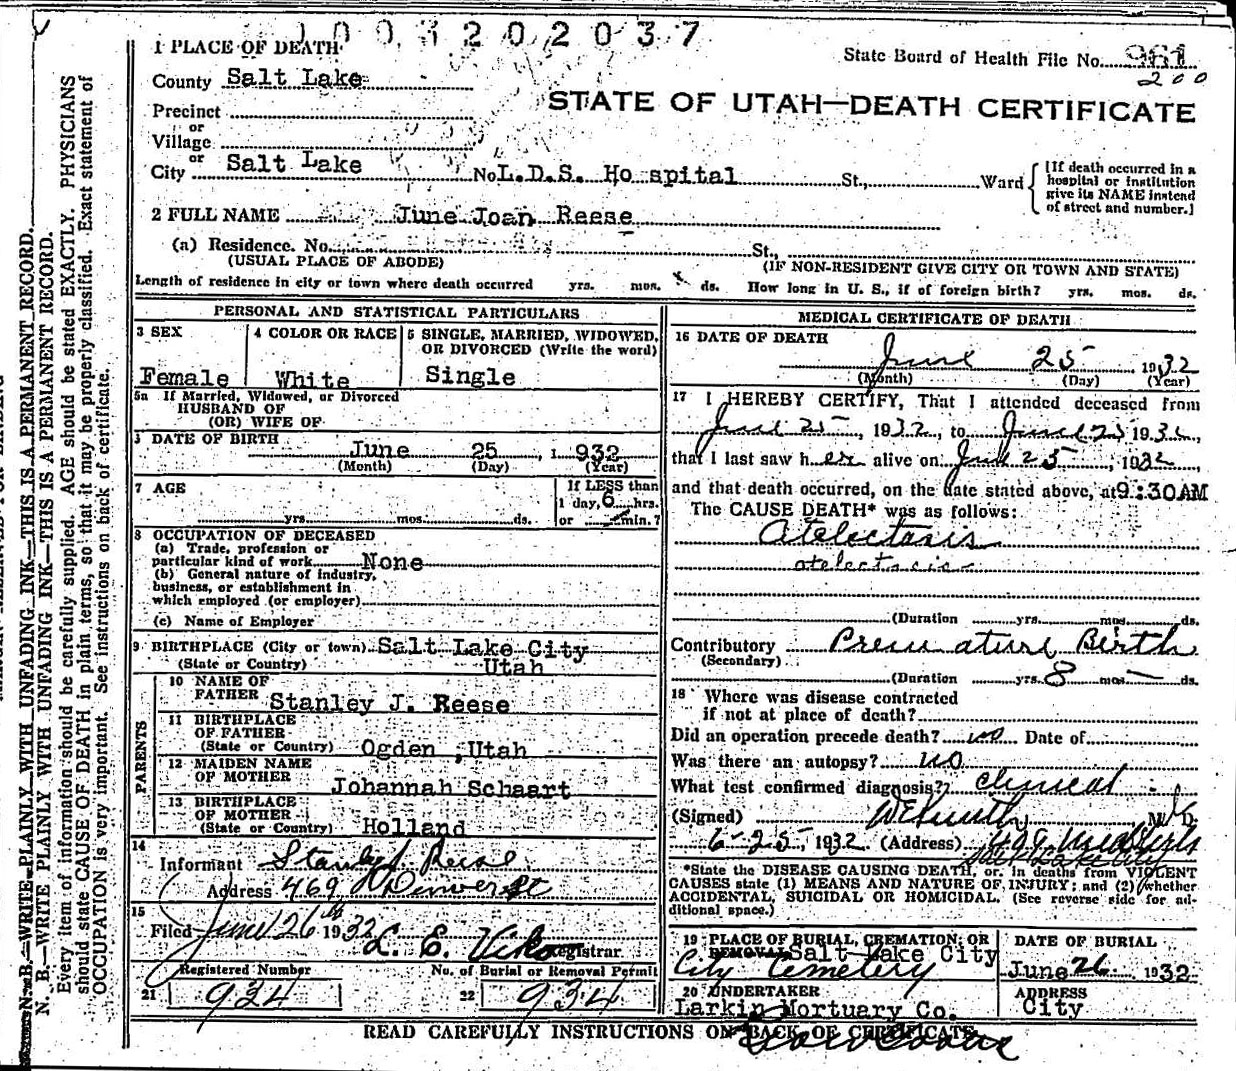 1003202037
1 PLACE OF DEATH
State Board of Health File No. 961
200
County Salt Lake
STATE OF UTAH—DEATH CERTIFICATE
Precinct
or
Village
or
City Salt Lake No. L.D.S. Ho spital St., Ward
[If death occurred in a hospital or institution give its NAME instead of street and number.]
2 FULL NAME June Joan Reese
(a) Residence. No. St.,
(USUAL PLACE OF ABODE) (IF NON-RESIDENT GIVE CITY OR TOWN AND STATE)
Length of residence in city or town where death occurred yrs. mos. ds. How long in U. S., if of foreign birth? yrs. mos. ds.
PERSONAL AND STATISTICAL PARTICULARS
3 SEX
Female
4 COLOR OR RACE
White
5 SINGLE, MARRIED, WIDOWED, OR DIVORCED (Write the word)
Single
5a If Married, Widowed, or Divorced
HUSBAND OF
(OR) WIFE OF
DATE OF BIRTH June 25, 1932
(Month) (Day) (Year)
7 AGE
yrs. mos. ds.
If LESS than
1 day, 6 hrs.
or min.?
8 OCCUPATION OF DECEASED
(a) Trade, profession or
particular kind of work None
(b) General nature of industry,
business, or establishment in
which employed (or employer)
(c) Name of Employer
9 BIRTHPLACE (City or town) Salt Lake City
(State or Country) Utah
PARENTS
10 NAME OF
FATHER Stanley J. Reese
11 BIRTHPLACE
OF FATHER
(State or Country) Ogden, Utah
12 MAIDEN NAME
OF MOTHER
Johannah Schaart
13 BIRTHPLACE
OF MOTHER
(State or Country) Holland
14
Informant Stanley J. Reese
Address 469 Denver St
15
Filed June 26th 1932 L. E. Registrar
Registered Number
21 934
No. of Burial or Removal Permit
22 934
MEDICAL CERTIFICATE OF DEATH
16 DATE OF DEATH
June 25 1932
(Month) (Day) (Year)
17 I HEREBY CERTIFY, That I attended deceased from
June 25, 1932, to June 25 1932,
that I last saw her alive on June 25, 1932,
and that death occurred, on the date stated above, at 9:30AM
The CAUSE DEATH* was as follows:
Atelectasis
atelectasis
(Duration yrs. mos. ds.
Contributory Premature Birth
(Secondary)
(Duration yrs. 8 mos. — ds.
18 Where was disease contracted
if not at place of death?
Did an operation precede death? no Date of
Was there an autopsy? no
What test confirmed diagnosis?? clinical
(Signed) M. D.
6-25, 1932 (Address)
Salt Lake City
*State the DISEASE CAUSING DEATH, or, in deaths from VIOLENT
CAUSES state (1) MEANS AND NATURE OF INJURY; and (2) whether
ACCIDENTAL, SUICIDAL OR HOMICIDAL. (See reverse side for ad-
ditional space.)
19 PLACE OF BURIAL, CREMATION, OR
REMOVAL Salt Lake City
City Cemetery
DATE OF BURIAL
June 26 1932
20 UNDERTAKER
Larkin Mortuary Co.
ADDRESS
City
READ CAREFULLY INSTRUCTIONS ON BACK OF CERTIFICATE
N. B.—WRITE PLAINLY WITH UNFADING INK—THIS IS A PERMANENT RECORD.
N. B.—WRITE PLAINLY WITH UNFADING INK—THIS IS A PERMANENT RECORD.
Every item of information should be carefully supplied. AGE should be stated EXACTLY. PHYSICIANS
should state CAUSE OF DEATH in plain terms, so that it may be properly classified. Exact statement of
OCCUPATION is very important. See instructions on back of certificate.